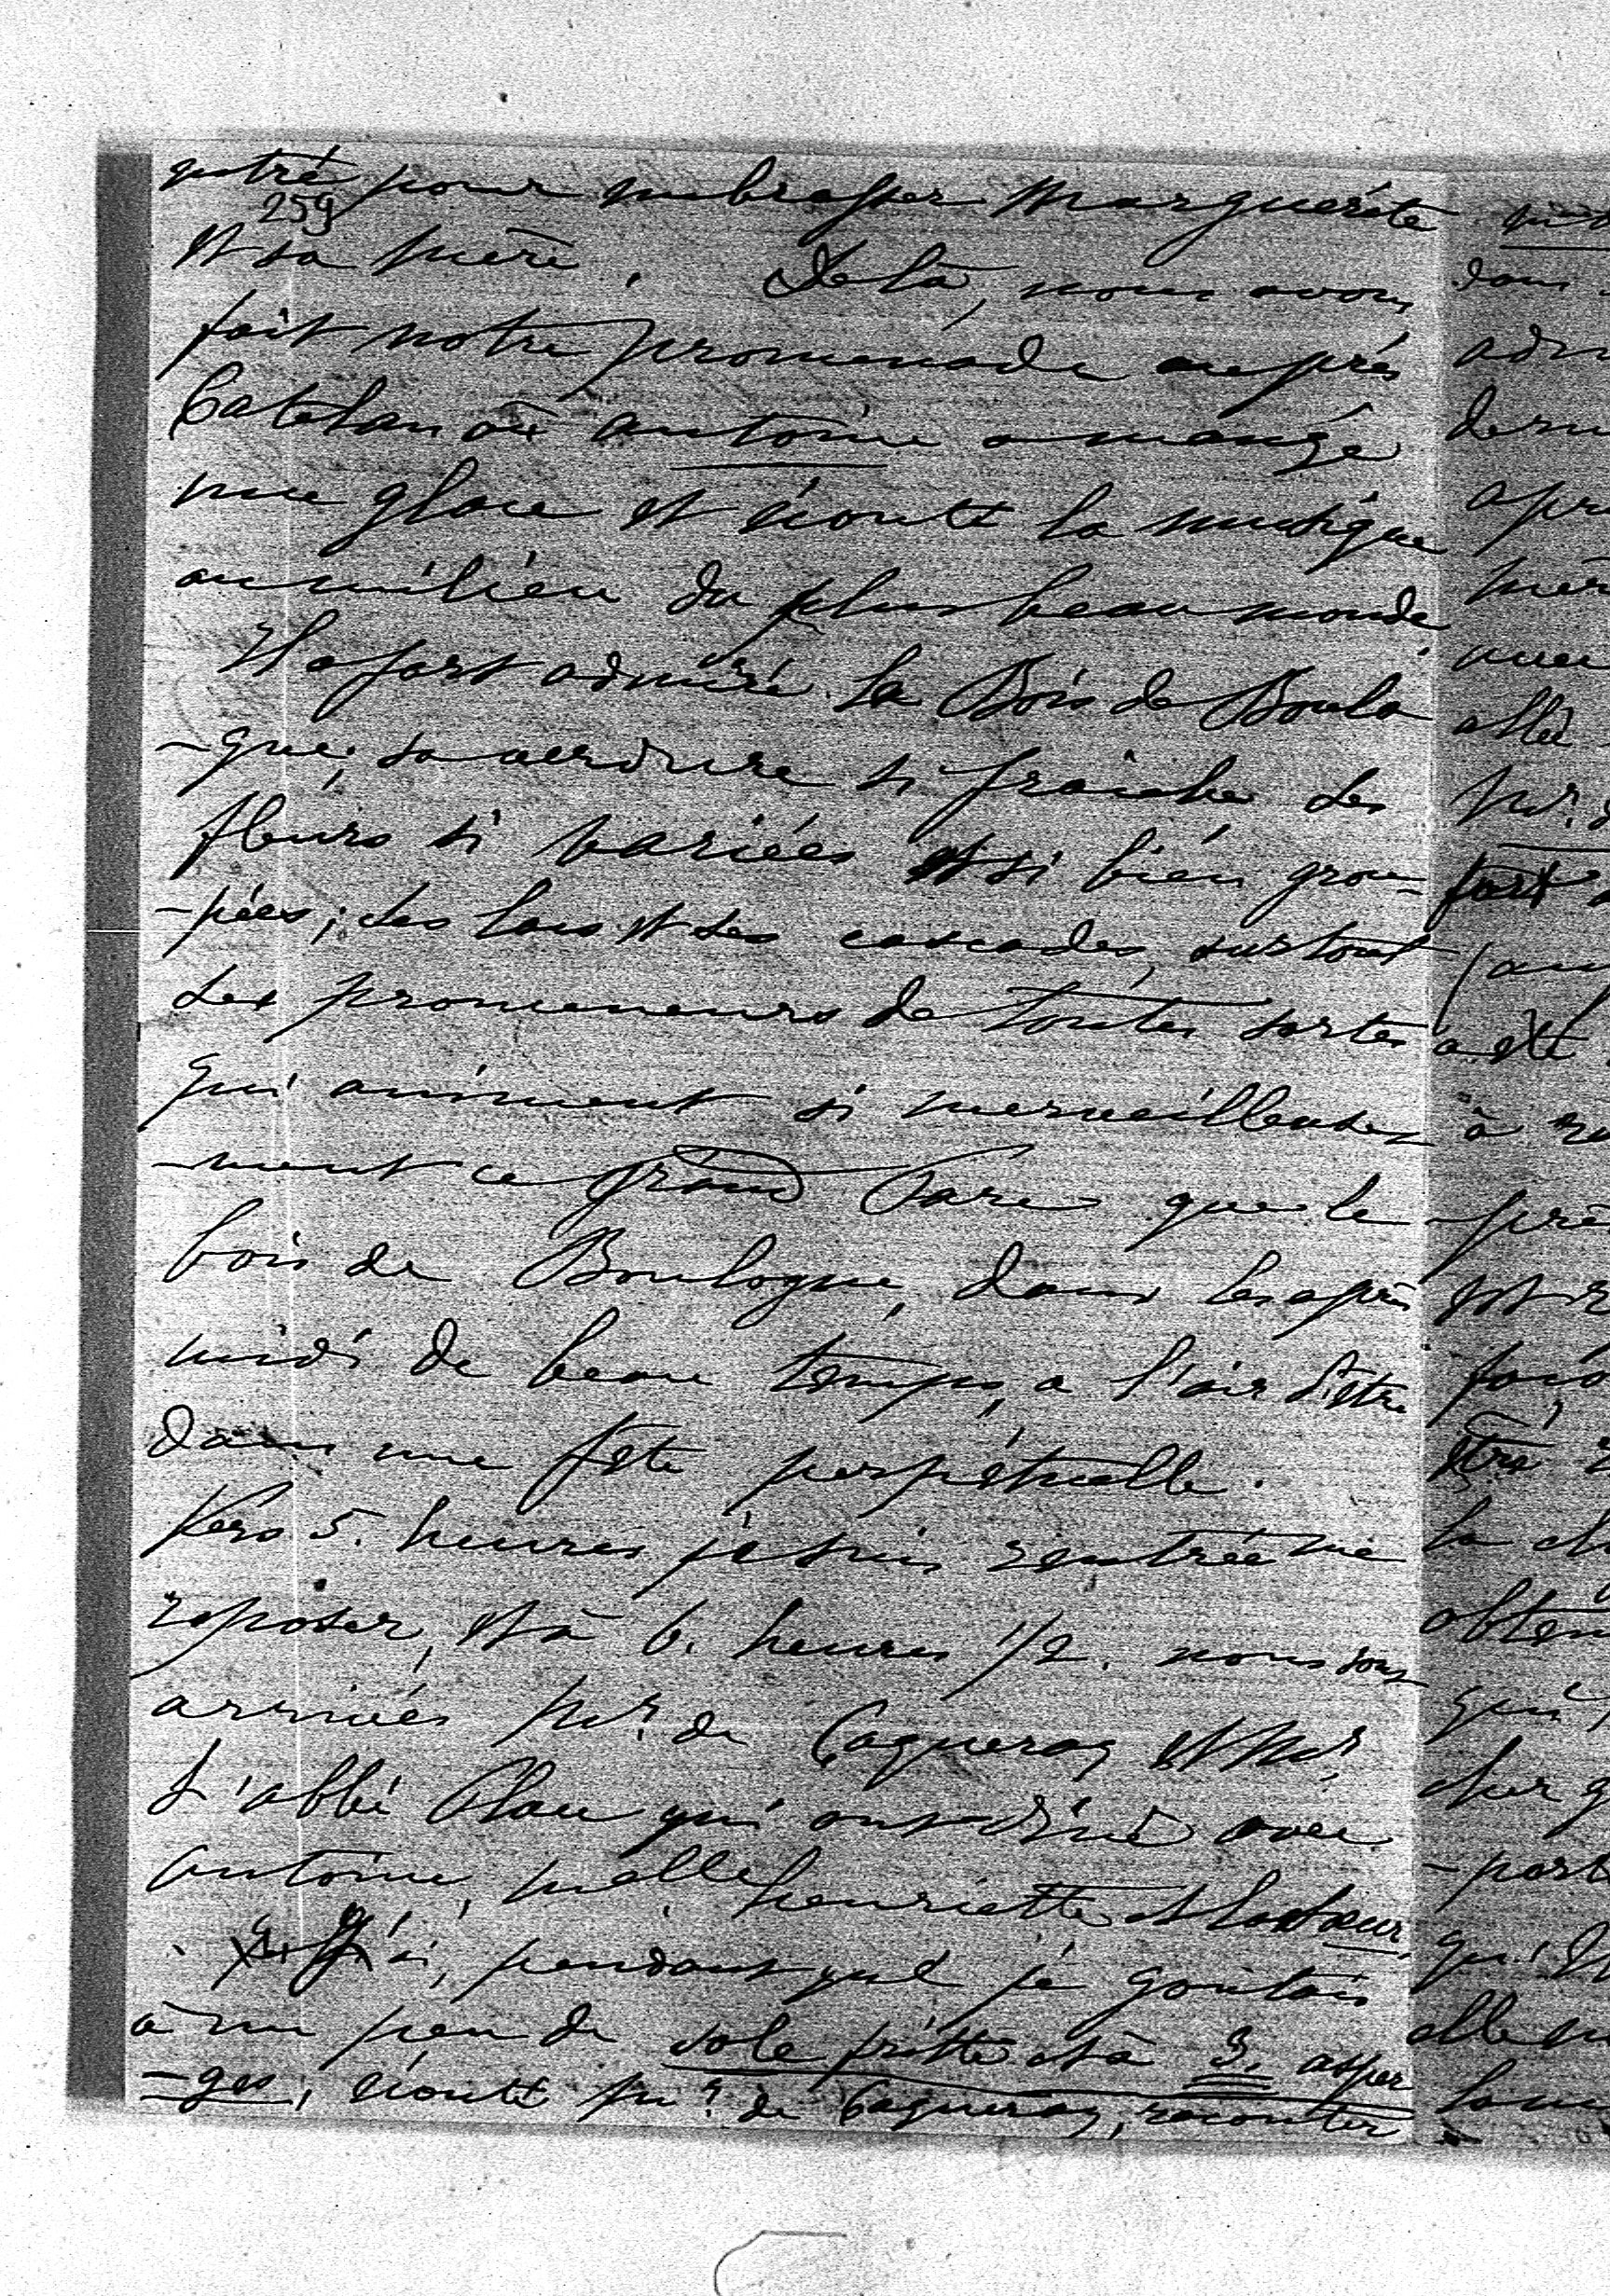 entré pour embrasser Marguerite
259
et sa mère. De là, nous avons
fait notre promenade au près
Catelan où Antoine a mangé
une glace et écouté la musique
au milieu du plus beau monde.
Il a fort admiré le Bois de Boulo
-gne, sa verdure si fraiche des
fleurs si variées et si bien grou-
-pées; des lacs et des cascades, surtout
des promeneurs de toutes sortes
qui animent si merveilleuse-
-ment ce grand Parc que le
bois de Boulogne, dans les après
midi de beau temps, a l'air d'être
dans une fête perpétuelle.
Vers 5. heures je suis rentrée me
reposer, et à 6. heures 1/2. nous sont
arrivés Mr. de Caqueray et Mr.
l'abbé Chau qui ont diné avec
Antoine, Melle Henriette et la sœur.
pendant que je goûtais
à un peu de sole fritte et à 3. asper
-ges, écouté Mr. de Caqueray, raconter